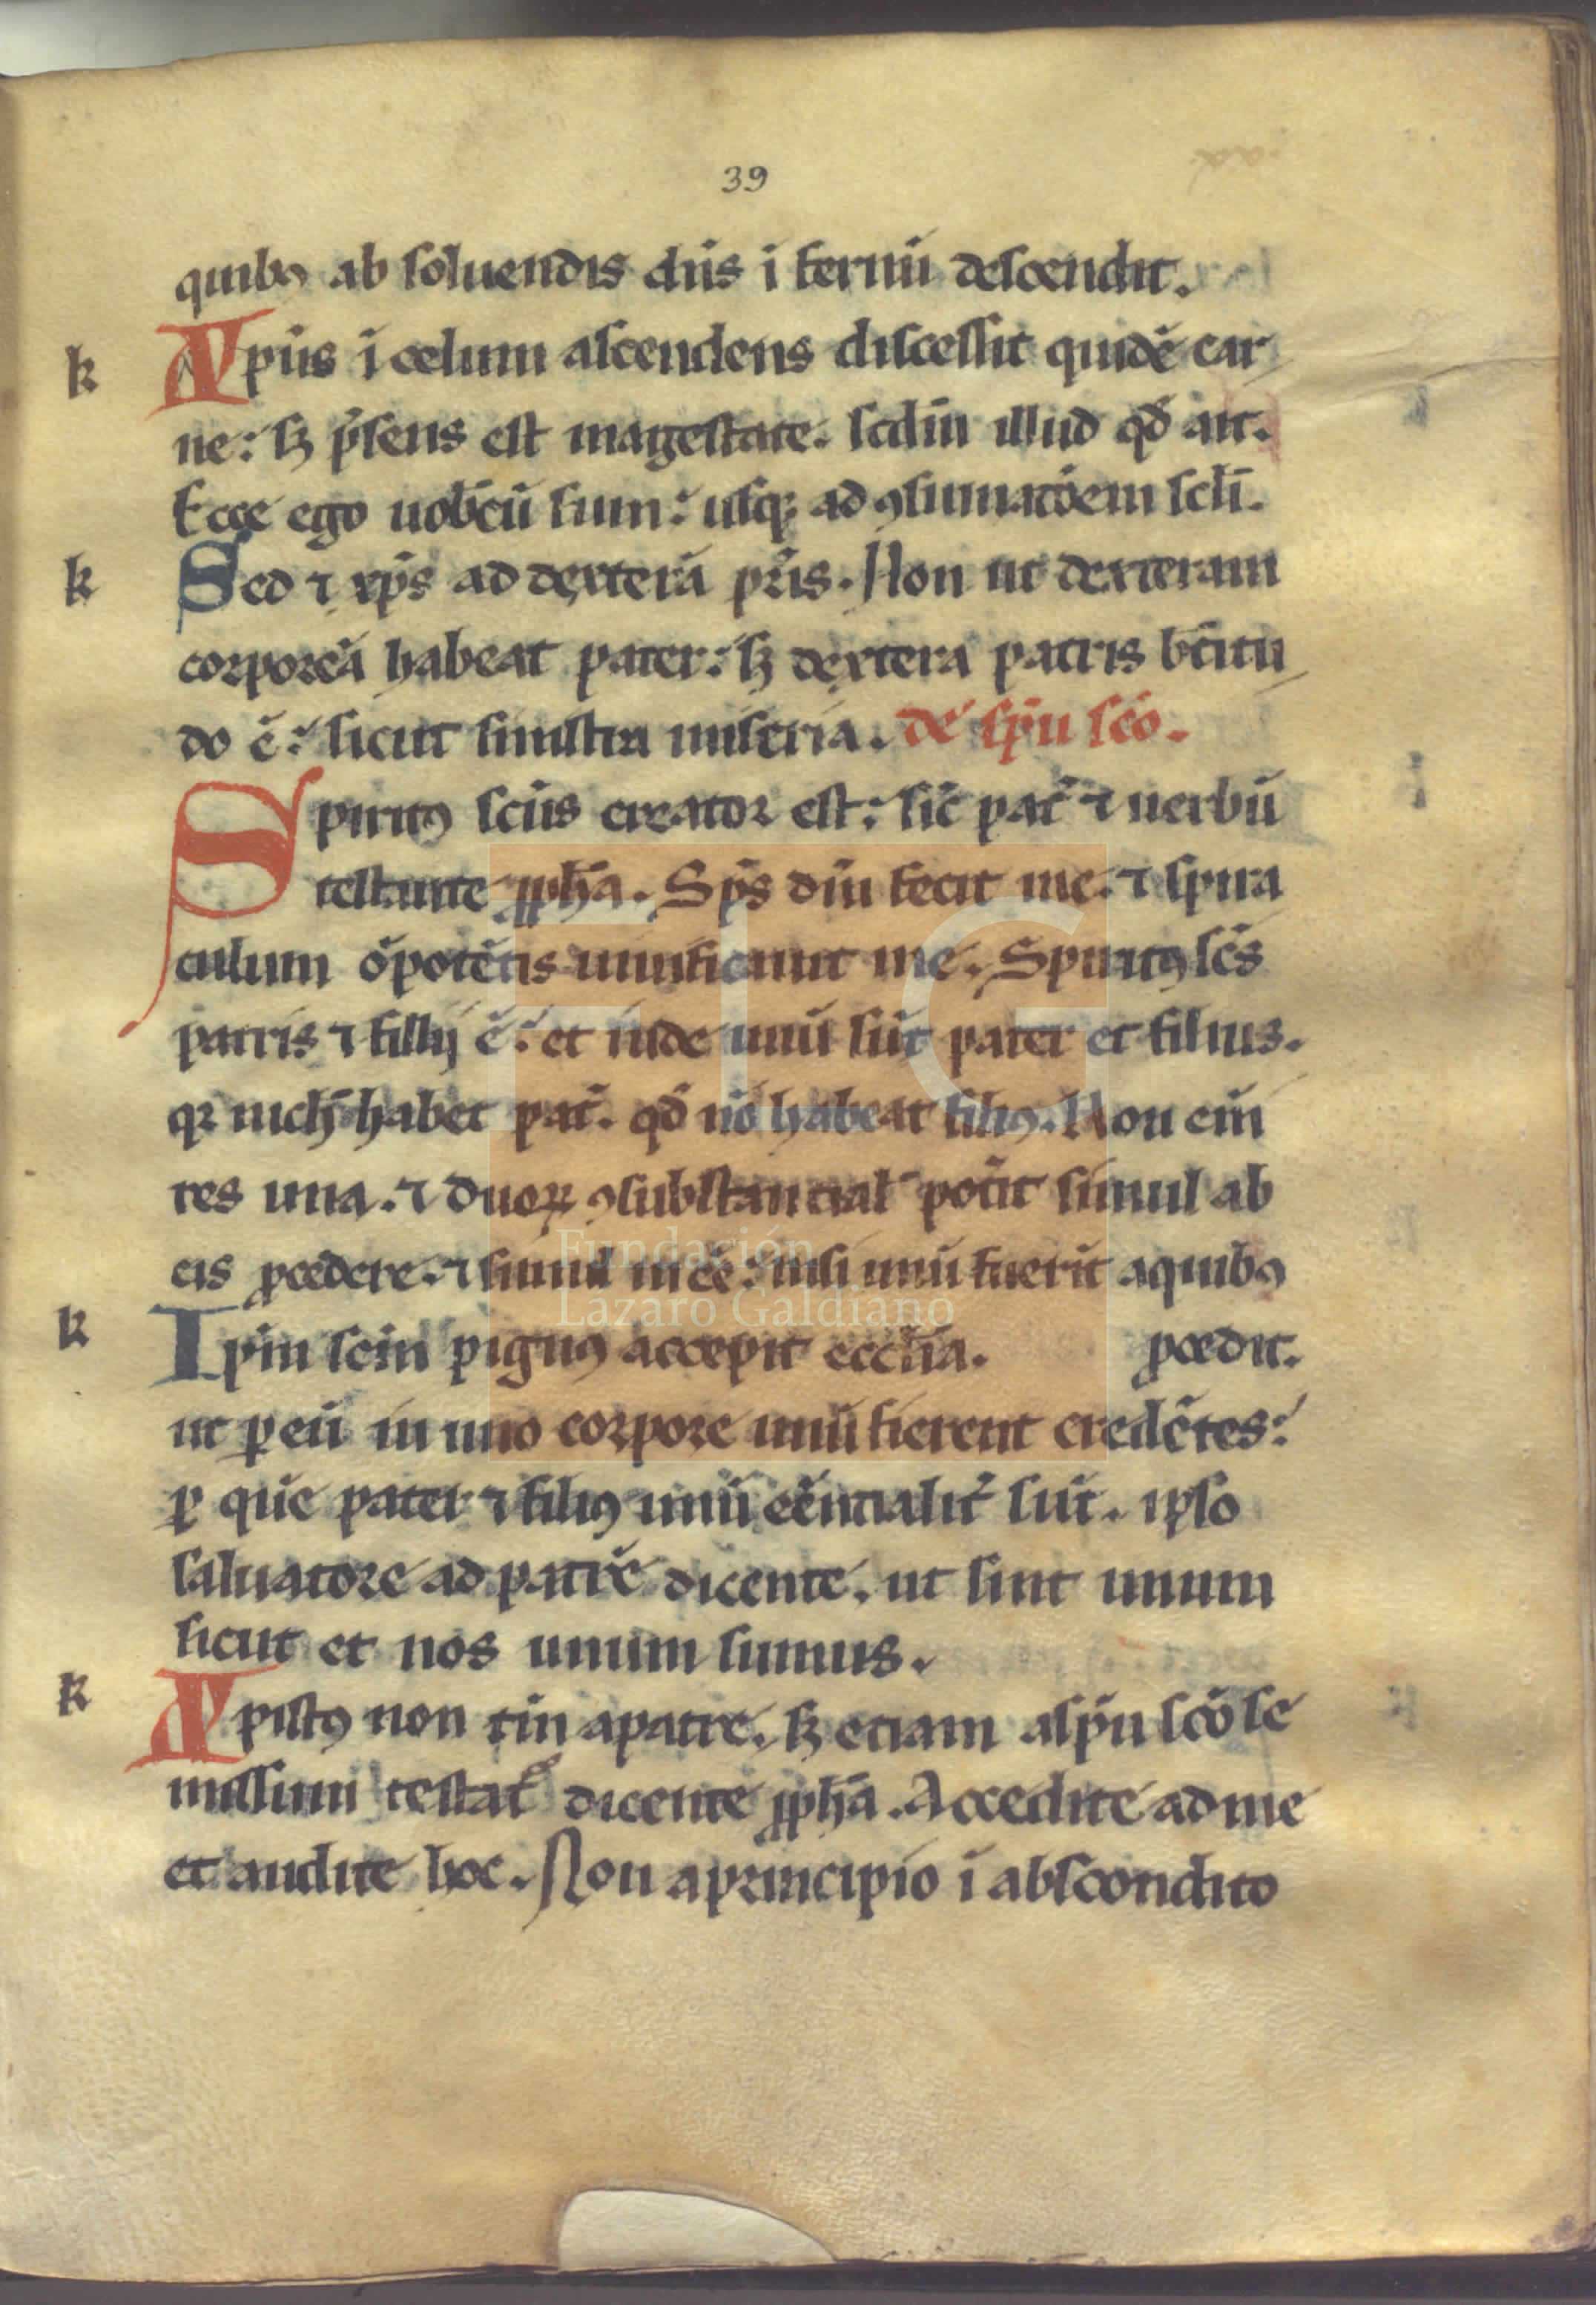 39
quibꝰ ab soluendis dn̄s ī fernū descendit.
k Xp̄us ī celum ascendens discessit quidē car
ne: sꝫ p̄sens est magestate. scdm̄ illud qd̄ ait.
Ecce ego uob̄cū sum: usqꝫ ad ꝯsumatōem scl̄i.
k Sed ⁊ xp̄s ad dexterā pr̄is. Non ut dexteram
corporeā habeat pater: sꝫ dextera patris bt̄itu
do ē: sicut sinistra miseria. de sp̄u sc̄o.
Spiritꝰ sc̄us creator est: sic̄ pat̄ ⁊ uerbū
testante ꝓph̄a. Sp̄s dn̄i fecit me. ⁊ spira
culum ōpotētis uiuificauit me. Spiritꝰ sc̄s
patris ⁊ filij ē: et inde unū sūt pater et filius.
qꝛ nich̄ habet pat̄. qd̄ nō habeat filiꝰ. Non eni̅
res una. ⁊ duoꝝ ꝯsubstantial̄ pot̄it simul ab
eis ꝓcedere. ⁊ simul in eē: nisi unū fuerīt aquibꝰ
k Sp̄m sc̄m pignꝰ accepit eccl̄ia. ꝓcedit.
ut ꝑ eū in uno corpore unū fierent credētes:
ꝑ quē pater ⁊ filiꝰ unū eēntialit̄ sūt. ipso
saluatore ad patrē dicente. ut sint unum
sicut et nos unum sumus.
k Xpistꝰ non tm̄ apatre. sꝫ etiam asp̄u sc̄o se
missum testat᷑ dicente ꝓph̄a. Accedite ad me
et audite hoc. Non aprincipio ī abscondito
Fundación
Lázaro Galdiano